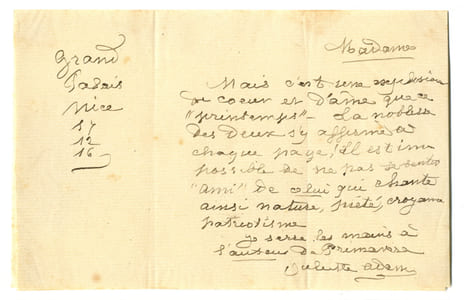 Grand
Palais
Nice
17
12
16
Madame
Mais c'est une explosion
de coeur et d'âme que ce
"printemps" - La noblesse
des Deux s'y affirme à
chaque page, Il est im
possible de ne pas se sentir
"ami" de celui qui chante
ainsi nature, piété, croyance
patriotisme
je serre les mains à
l'auteur de Primavera
Juliette Adam